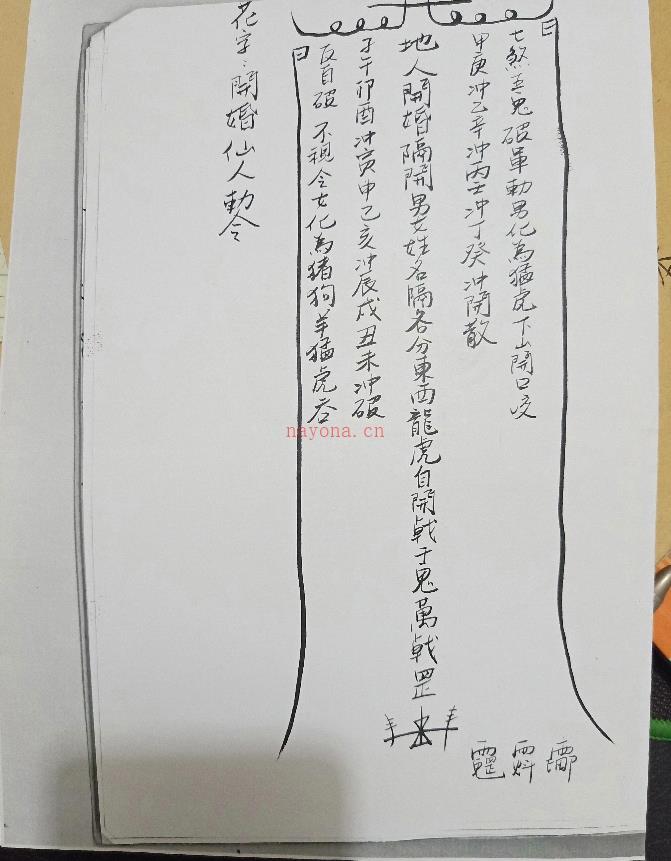 七煞五鬼破軍勅男化為猛虎下山開口咬
甲庚冲乙辛冲丙壬冲丁癸冲開散
地人開婚隔開男女姓名隔各分東西龍虎自開戟于鬼萬戟罡
子午卯酉冲寅申乙亥冲辰戌丑未冲破
反目破不親令女化為猪狗羊猛虎吞
花字：開婚仙人勅令
nayona.cn